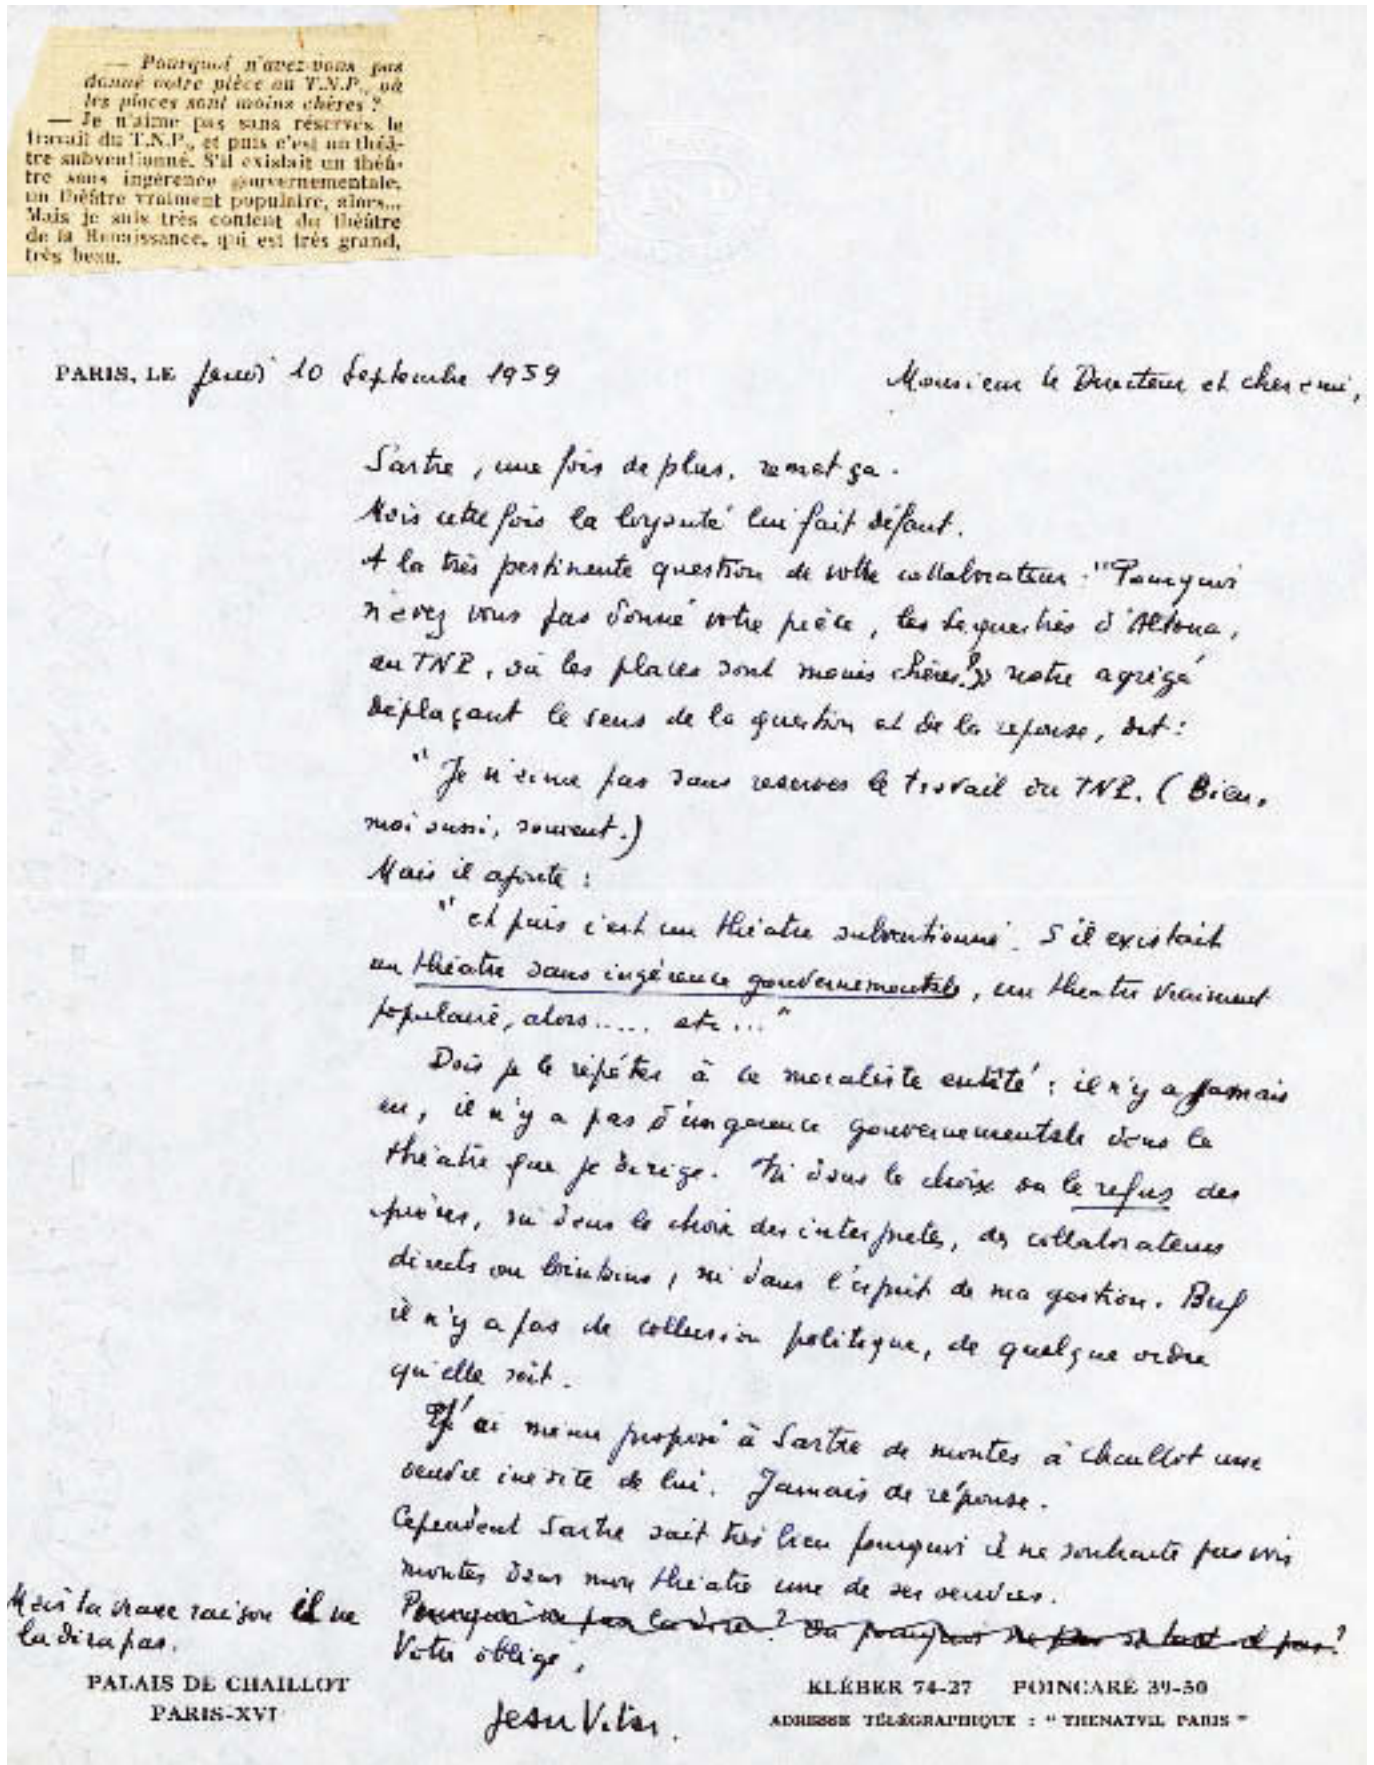 — Pourquoi n'avez-vous pas
donné votre pièce au T.N.P., où
les places sont moins chères ?
— Je n'aime pas sans réserves le
travail du T.N.P., et puis c'est un théâ-
tre subventionné. S'il existait un théâ-
tre sans ingérence gouvernementale,
un théâtre vraiment populaire, alors...
Mais je suis très content du théâtre
de la Renaissance, qui est très grand,
très beau.
PARIS, LE Jeudi 10 Septembre 1959
Monsieur le Directeur et cher ami,
Sartre, une fois de plus, remet ça.
Mais cette fois la loyauté lui fait défaut.
A la très pertinente question de votre collaborateur : "Pourquoi
n'avez vous pas donné votre pièce, les Sequestrés d'Altona,
au TNP, où les places sont moins chères?" notre agrégé
déplaçant le sens de la question et de la reponse, dit :
" Je n'aime pas sans reserves le travail du TNP. (Bien,
moi aussi, souvent.)
Mais il ajoute :
" et puis c'est un théatre subventionné. S'il existait
un théatre sans ingérence gouvernementale, un theatre vraiment
populaire, alors..... etc..."
Dois je le répéter à ce moraliste entêté : il n'y a jamais
eu, il n'y a pas d'ingerence gouvernementale dans le
théatre que je dirige. Ni dans le choix ou le refus des
pièces, ni dans le choix des interpretes, des collaborateurs
directs ou lointains, ni dans l'esprit de ma gestion. Bref
il n'y a pas de collusion politique, de quelque ordre
qu'elle soit.
J'ai même proposé à Sartre de monter à Chaillot une
oeuvre inedite de lui. Jamais de réponse.
Cependant Sartre sait très bien pourquoi il ne souhaite pas voir
monter dans mon théatre une de ses oeuvres.
Mais la vraie raison il ne
la dira pas.
Pourquoi ne pas la dire ? Ou pourquoi ne se tait il pas ?
Votre obligé,
Jean Vilar.
PALAIS DE CHAILLOT
PARIS-XVI
KLÉBER 74-27 POINCARÉ 39-50
ADRESSE TÉLÉGRAPHIQUE : " THENATVIL PARIS "